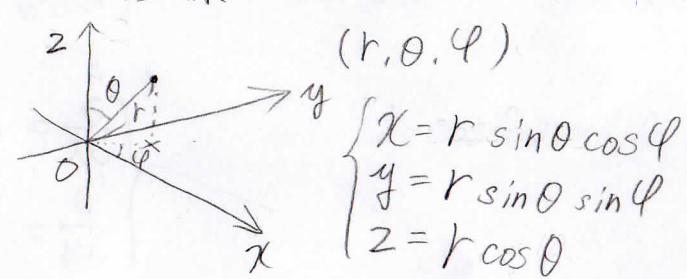 z
θ
r
y
O
φ
x
(r, θ, φ)
x = r sinθ cosφ
y = r sinθ sinφ
z = r cosθ